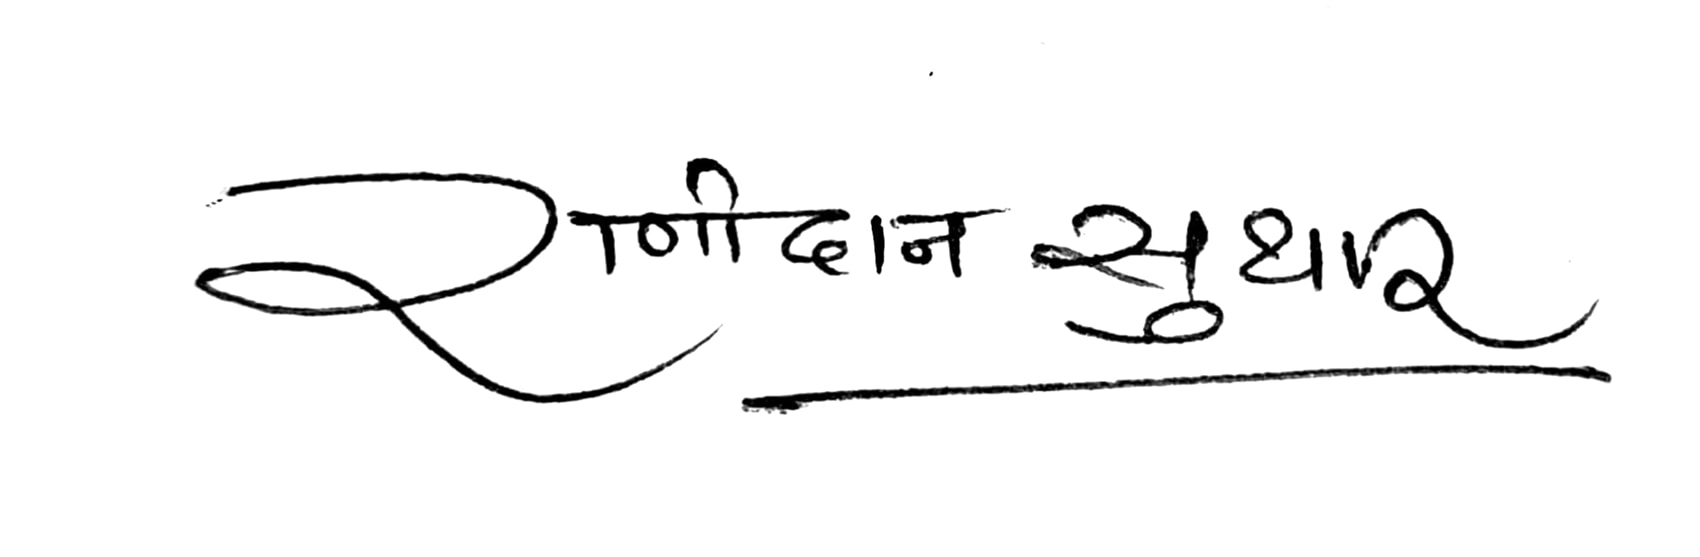 राणीदान सुथार